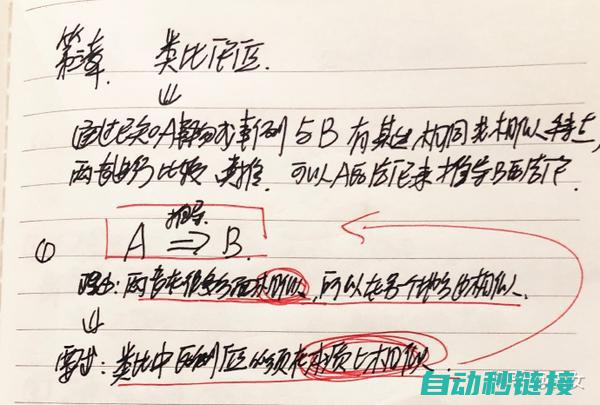 第三章. 类比论证.
通过已知A事物或事例与B有某些相同或相似特点,
两者进行比较 类推. 可以A的结论来推导B的结论.
推导
① A ⇒ B.
理由: 两者在很多方面相似, 可以在另个地方也相似.
需要: 类比中的例证必须在本质上相似.
自动秒链接
女